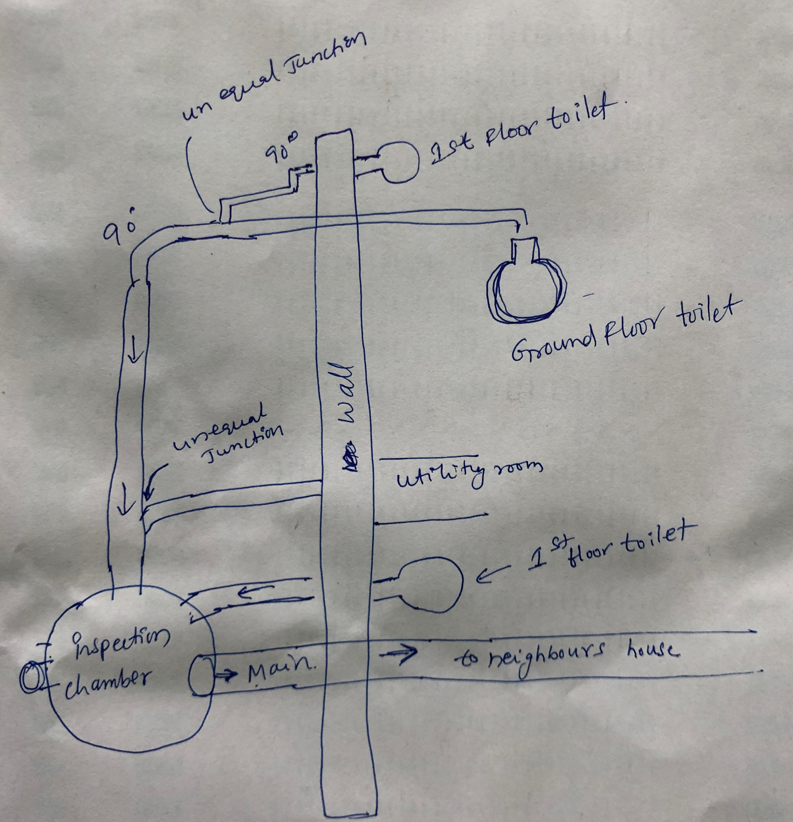 unequal Junction
90°
1st Floor toilet.
90°
Ground Floor toilet
Wall
unequal
Junction
utility room
1st floor toilet
Inspection
chamber
Main.
to neighbours house